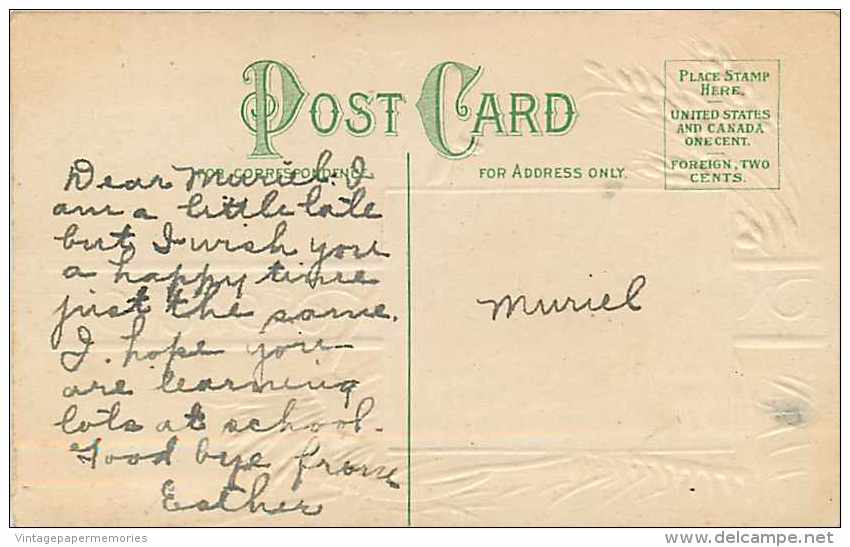 POST CARD
FOR CORRESPONDENCE.
FOR ADDRESS ONLY.
PLACE STAMP
HERE.
UNITED STATES
AND CANADA
ONE CENT.
FOREIGN, TWO
CENTS.
Dear Muriel. I
am a little late
but I wish you
a happy time
just the same.
I. hope you
are learning
lots at school.
Good bye from
Esther
Muriel
Vintagepapermemories
delcampe.net